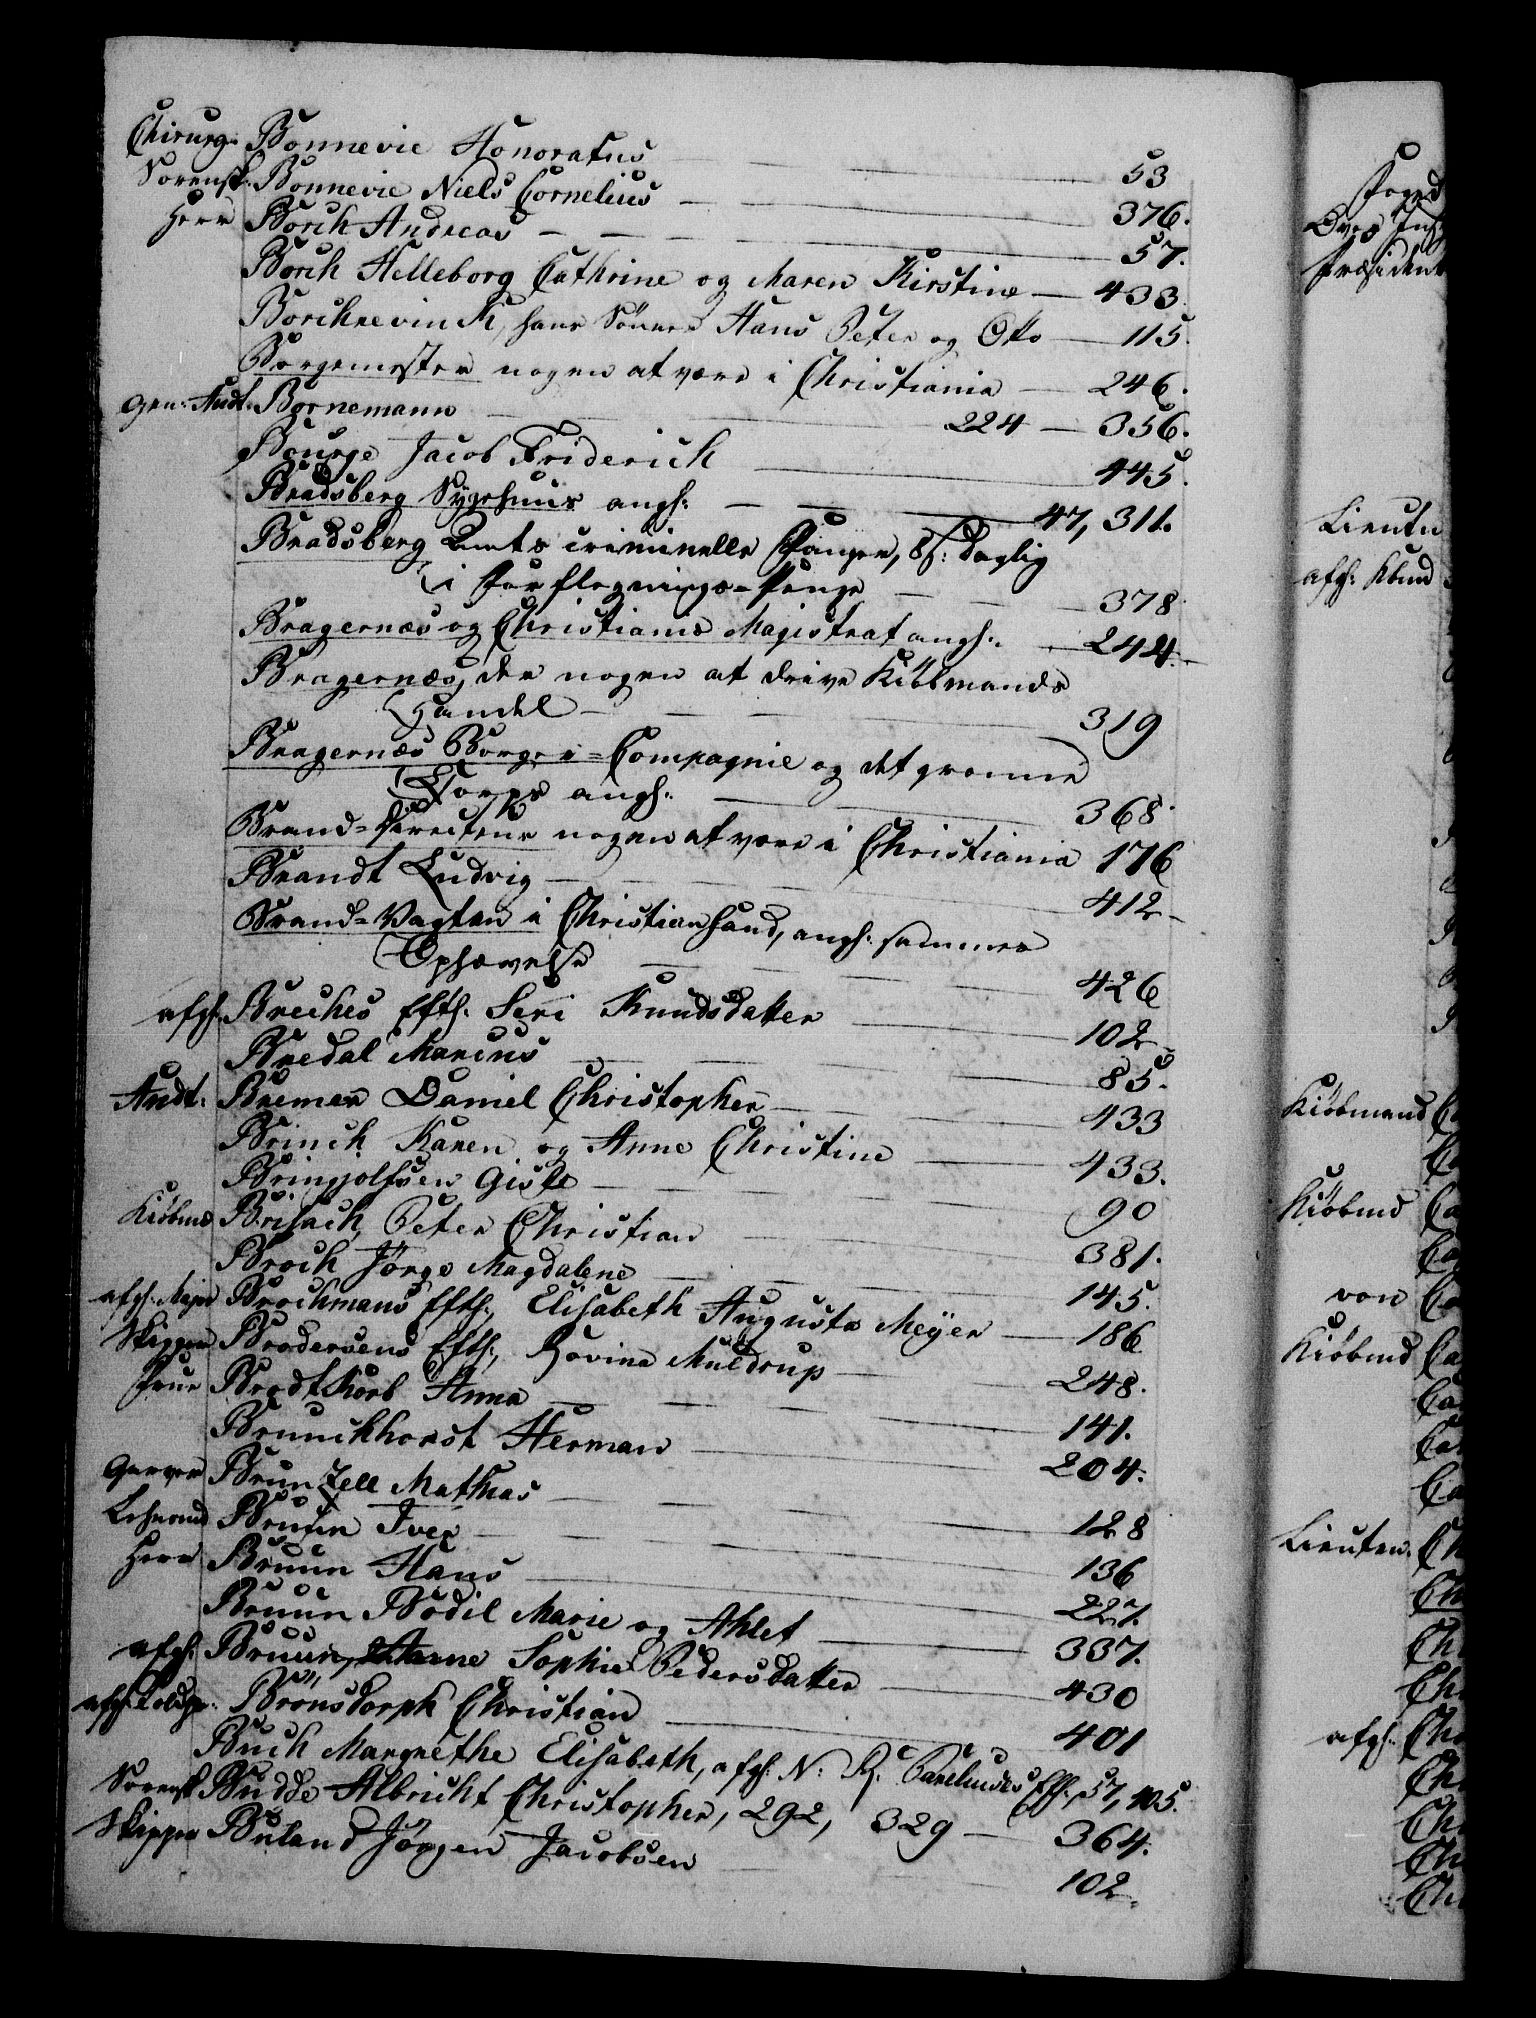 Chirurg: Bonnevie Honoratus 53
Sorensk: Bonnevie Niels Cornelius 376.
Herr Borch Andreas 57.
Borch Helleborg Cathrine og Maren Kirstine 433.
Borchrevink, hans Sönner Hans Peter og Otto 115.
Borgemester nogen at være i Christiania 246.
Gen: Aud: Bornemann 224 — 356.
Bourge Jacob Friderich 445.
Bradsberg Sygehuus angl: 47, 311.
Bradsberg Amts criminelle Fanger, 8 s: daglig
i Forflegnings-Penge 378
Bragernæs og Christiania Magistrat angl: 244.
Bragernæs, der nogen at drive Kiöbmands
Handel 319
Bragernæs Borger-Compagnie og det grønne
Corps angl: 368.
Brand-Directeur nogen at være i Christiania 176
Brandt Ludvig 412
Brand-Vagten i Christiansand, angl: sammes
Ophævelse 426
afg: Breches Eftl: Seri Knudsdatter 102
Bredal Marcus 85.
Audt: Bremer Daniel Christopher 433
Brinch Karen og Anne Christine 433.
Bringjolfsen Gisle 90
Kiöbmd Brisach, Peter Christian 381.
Broch Jörge Magdalene 145.
afg: Major Brochmans Eftl:, Elisabeth Augusta Meÿer 186
Skipper Brodersens Eftl:, Hovina Muldrup 248.
Frue Brodtkorb Anna 141.
Brunckhorst Herman 204.
Garver Brunzell Mathias 128
Lehnsmd Bruun Iver 136
Herr Bruun Hans 227.
Bruun Bodil Marie og Ahlet 337.
afg: Bruun, Anne Sophie Pedersdatter 430
Brönsdorph Christian 401
Buch Margrethe Elisabeth, afg: N: Eft: 57, 105.
Sorensk Budde Albricht Christopher, 292, 329 — 364.
Skipper Buland Jörgen Jacobsen 102.
Foged
Over Ins
Præsident
Lieutn
afg: Kbmd
Kiöbmand
Kiöbmd
von
Kiöbmd
Lieuten.
afg: